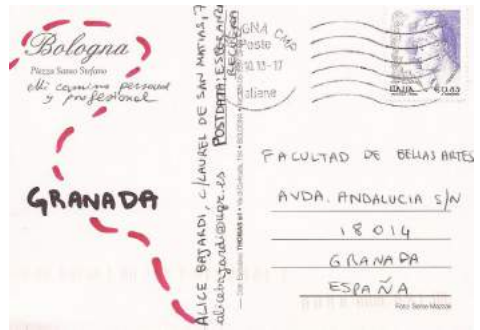 Bologna
Piazza Santo Stefano
Mi camino personal
y profesional
GRANADA
ALICE BAJARDI, C/LAUREL DE SAN MATIAS, 7
alicebajardi@ugr.es POSTDATA: ESPERANZA
RECUERA
GNA CMP
Poste
10.13-17
aliane
ITALIA €0,85
FACULTAD DE BELLAS ARTES
AVDA. ANDALUCIA S/N
18014
GRANADA
ESPAÑA